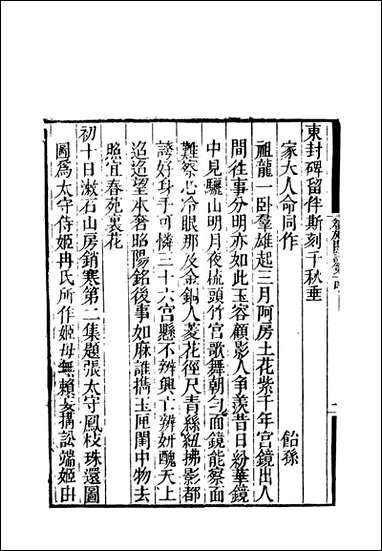 東封碑留伴斯刻千秋垂
家大人命同作　　　　　　　飴孫
祖龍一卧羣雄起三月阿房土花紫千年宮鏡出人
間往事分明亦如此玉容顧影人爭羨昔日紛華鏡
中見驪山明月夜梳頭竹宮歌舞朝勻面鏡能察面
難察心冷眼那及金銅人菱花徑尺青絲紐拂影都
誇好身手可憐三十六宮懸不辨興亡辨妍醜天上
迢迢望本奢昭陽銘後事如麻誰攜玉匣閨中物去
照宜春苑裏花
初十日漱石山房銷寒第二集題張太守鳳枝珠還圖
圖為太守侍姬冉氏所作姬母無賴 搆訟端姬由